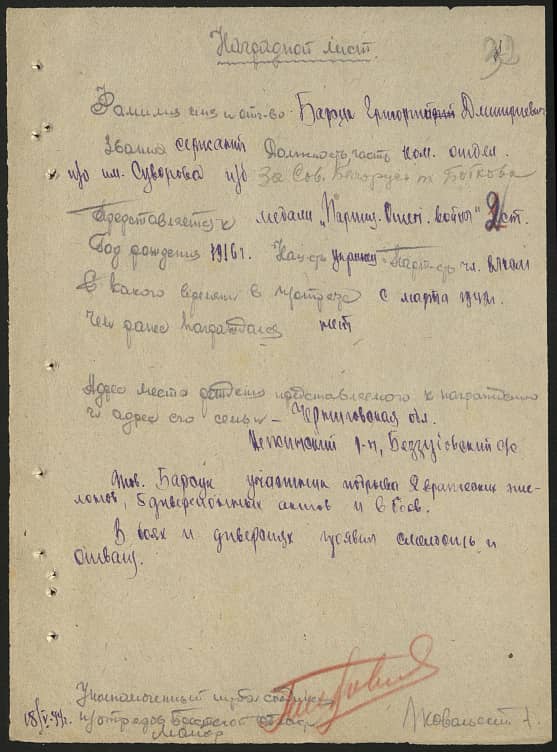 Наградной лист.
32
Фамилия имя и отч-во Барсук Григорий Дмитриевич
Звание сержант Должность, часть ком. отдел.
п/о им. Суворова п/б За Сов. Белорусь т.
Представляется к медали „Партиз. Отеч. войны" 2 ст.
Год рождения 1916 г. Нац-сть украинец Парт-сть чл. ВЛКСМ
С какого времени в п/отряде с марта 1942 г.
Чем ранее награждался нет
Адрес места представляемого к награждению
и адрес его семьи – Черниговская обл.
Нежинский р-н, с/с
Тов. Барсук участник подрыва 8 вражеских эше-
лонов, 5 диверсионных актов и 6 боев.
В боях и диверсиях проявил смелость и
отвагу.
Уполномоченный штаба
18/V-44 г. п/отрядов Брестской области
майор
Ковальский